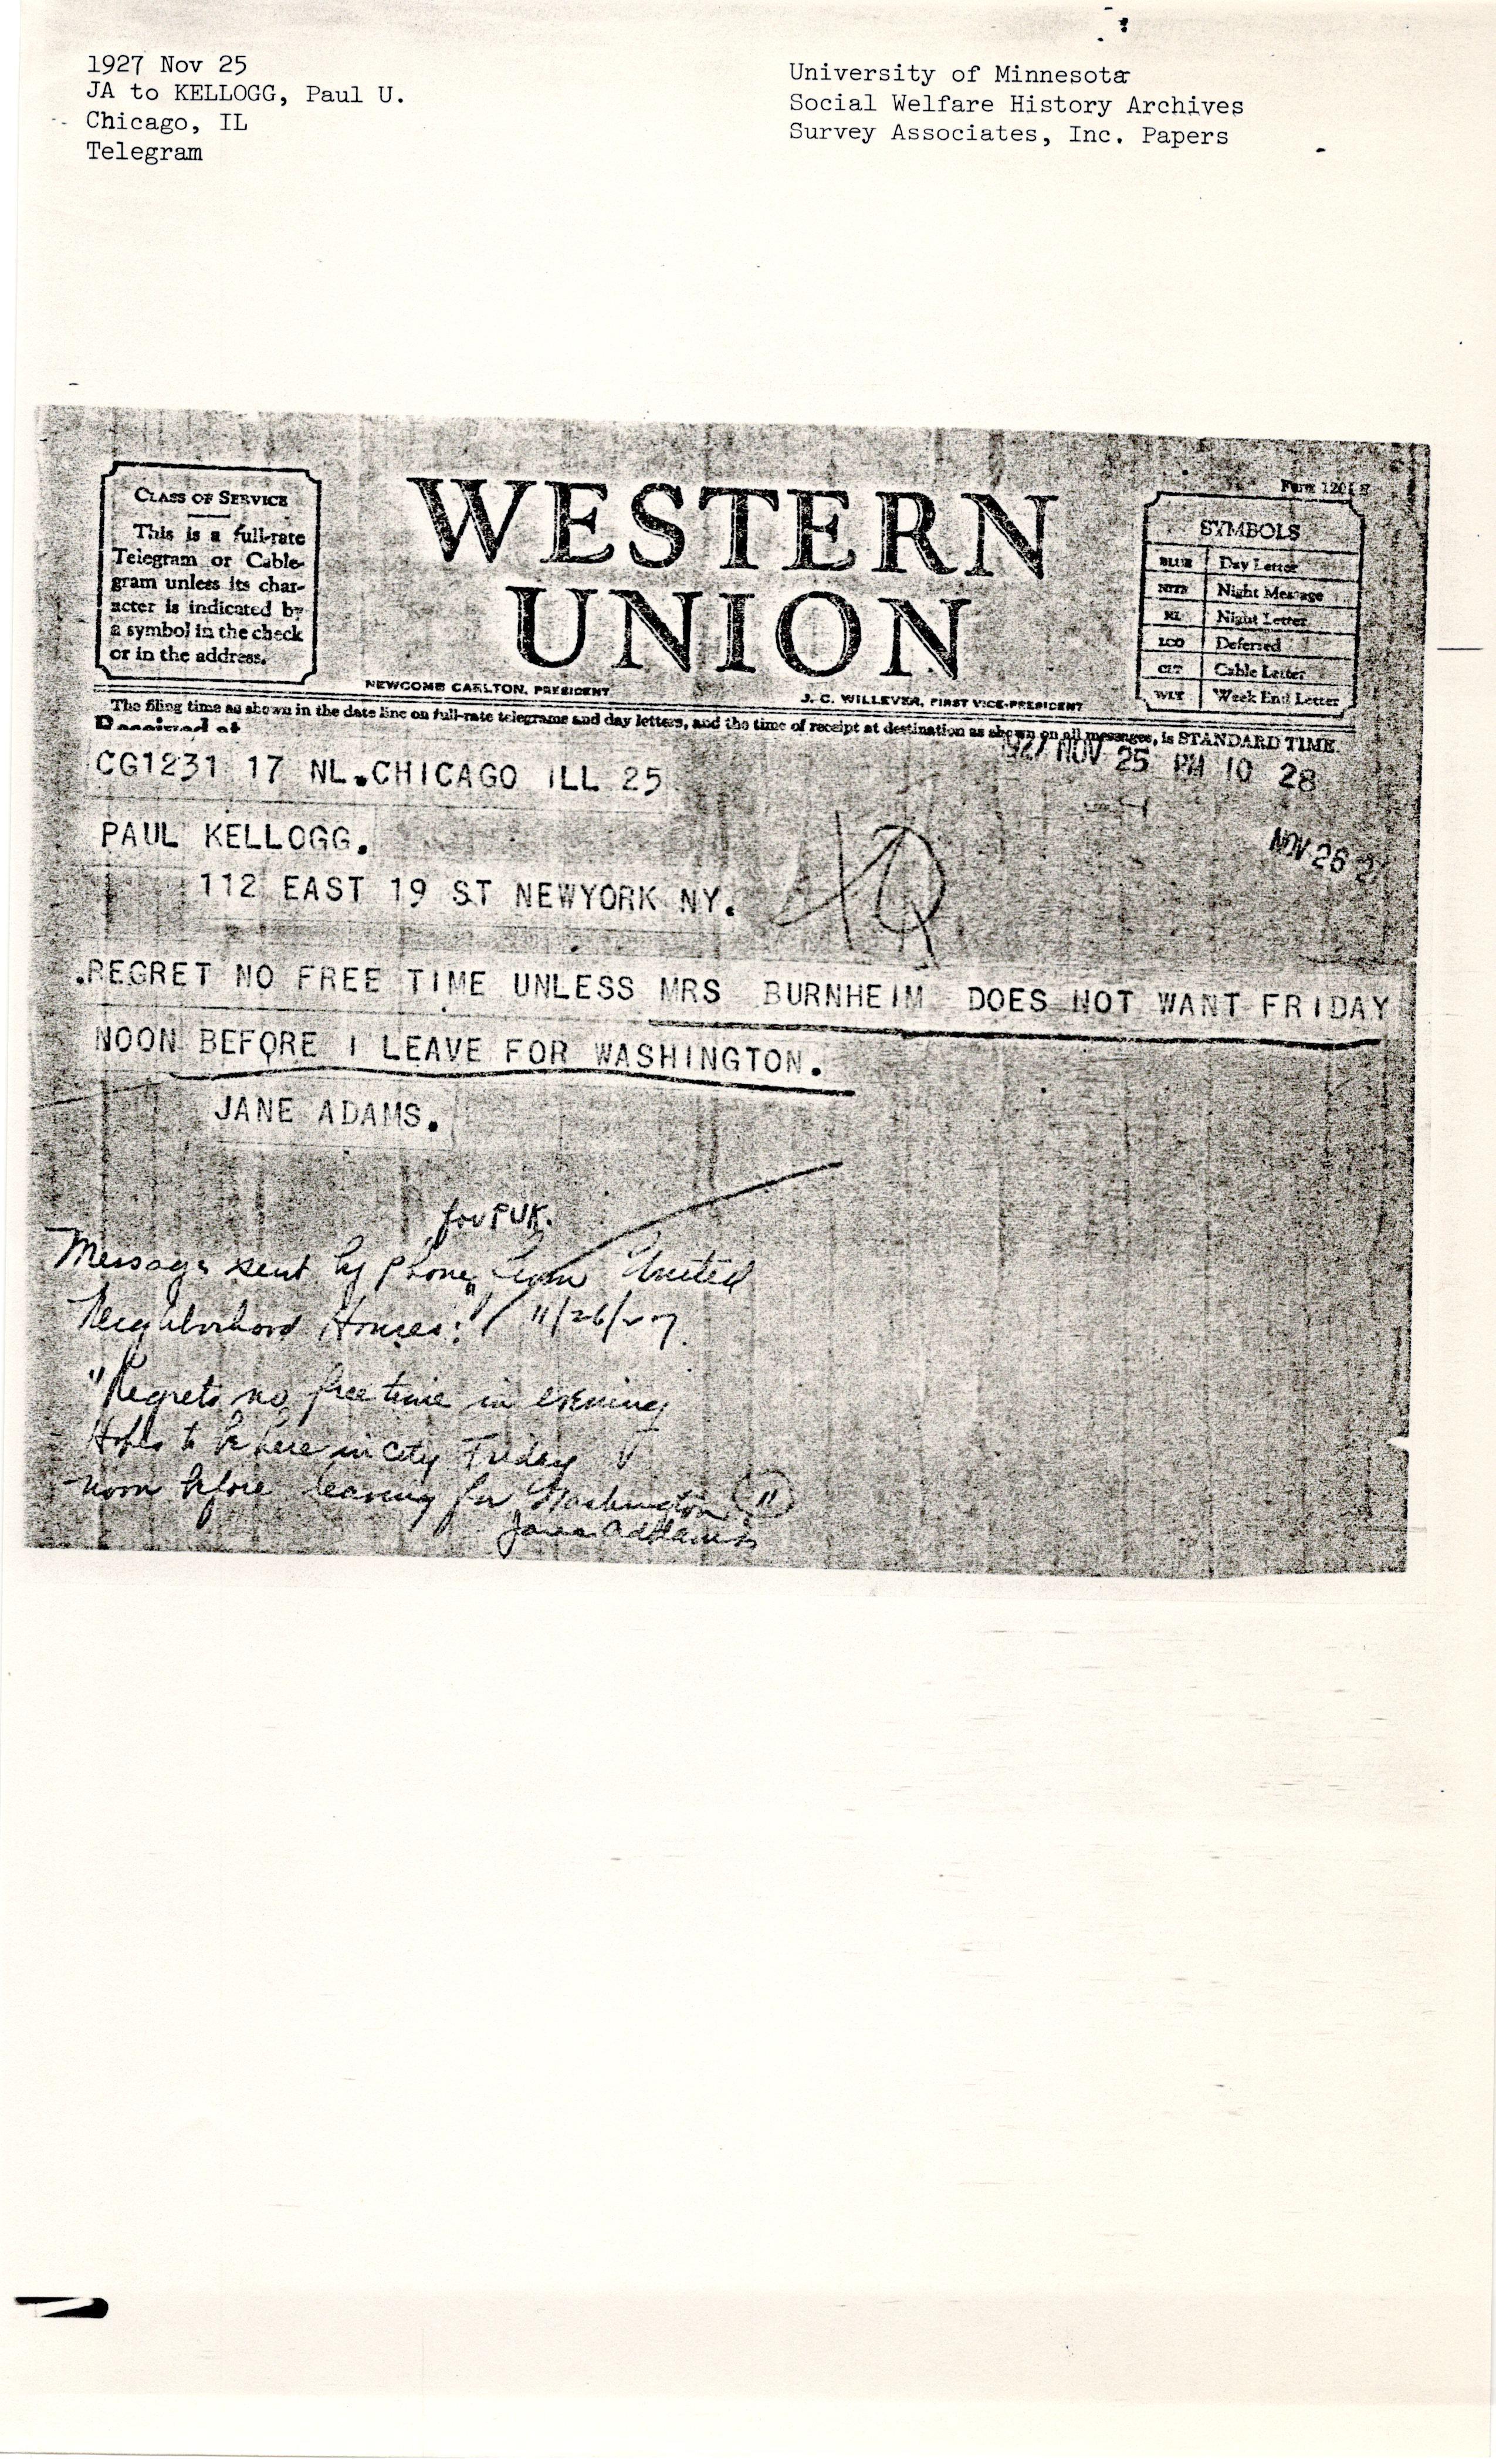 1927 Nov 25
JA to KELLOGG, Paul U.
Chicago, IL
Telegram
University of Minnesota
Social Welfare History Archives
Survey Associates, Inc. Papers
CLASS OF SERVICE
This is a full-rate
Telegram or Cable-
gram unless its char-
acter is indicated by
a symbol in the check
or in the address.
WESTERN
UNION
NEWCOMB CARLTON, PRESIDENT
J. C. WILLEVER, FIRST VICE-PRESIDENT
Form 1201
SYMBOLS
BLUE Day Letter
NITE Night Message
NL Night Letter
LCO Deferred
CLT Cable Letter
WLT Week End Letter
The filing time as shown in the date line on full-rate telegrams and day letters, and the time of receipt at destination as shown on all messages, is STANDARD TIME.
Received at
1927 NOV 25 PM 10 28
CG1231 17 NL.CHICAGO ILL 25
NOV 26
PAUL KELLOGG.
112 EAST 19 ST NEWYORK NY.
.REGRET NO FREE TIME UNLESS MRS BURNHEIM DOES NOT WANT FRIDAY
NOON BEFORE I LEAVE FOR WASHINGTON.
JANE ADAMS.
for PUK.
Message sent by phone, from United
Neighborhood Houses: 11/26/27.
"Regrets no free time in evening
Hopes to be here in city Friday
noon before leaving for Washington"
Jane Addams